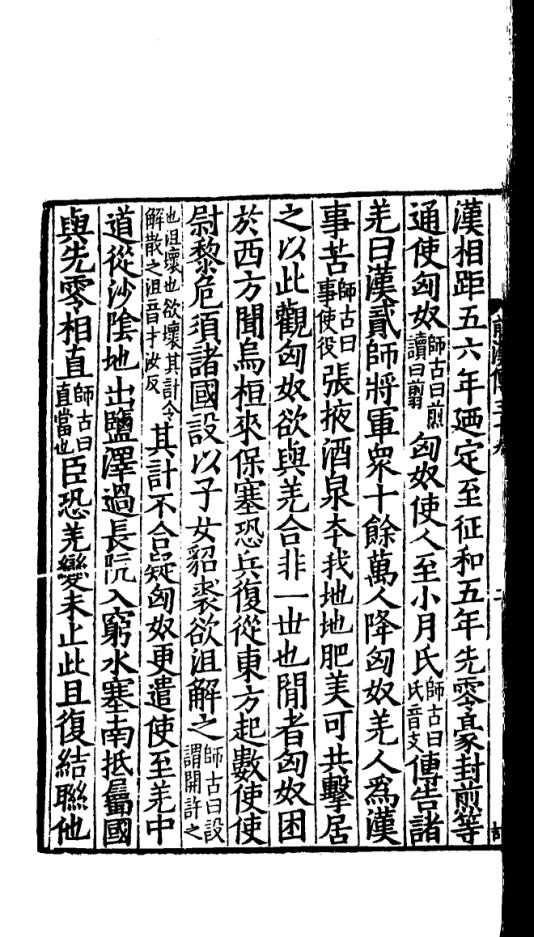 漢相距五六年廼定至征和五年先零豪封煎等
通使匈奴師古曰煎讀曰翦匈奴使人至小月氏師古曰氏音支傳告諸
羌曰漢貳師將軍衆十餘萬人降匈奴羌人爲漢
事苦師古曰事使役張掖酒泉夲我地地肥美可共擊居
之以此觀匈奴欲與羌合非一丗也閒者匈奴困
於西方聞烏桓來保塞恐兵復從東方起數使使
尉黎危須諸國設以子女貂裘欲沮解之師古曰設謂開許之
也沮壞也欲壞其計令解散之沮音才汝反其計不合疑匈奴更遣使至羌中
道從沙陰地出鹽澤過長阬入窮水塞南抵屬國
與先零相直師古曰直當也臣恐羌變未止此且復結聯他